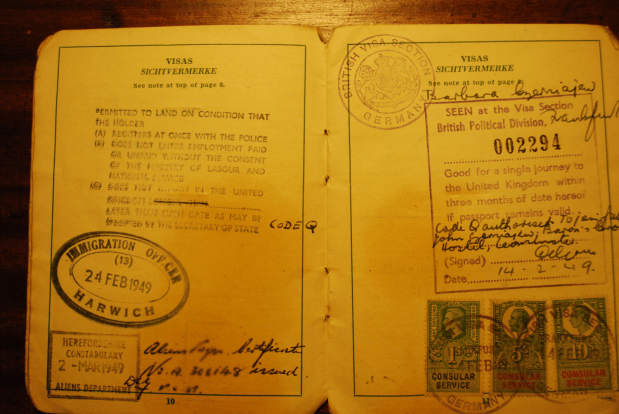 VISAS
SICHTVERMERKE
See note at top of page 6.
PERMITTED TO LAND ON CONDITION THAT
THE HOLDER
(A) REGISTERS AT ONCE WITH THE POLICE
(B) DOES NOT ENTER EMPLOYMENT PAID
OR UNPAID WITHOUT THE CONSENT
OF THE MINISTRY OF LABOUR AND
NATIONAL SERVICE
(C) DOES NOT REMAIN IN THE UNITED
KINGDOM
LATER THAN SUCH DATE AS MAY BE
SPECIFIED BY THE SECRETARY OF STATE CODE Q
IMMIGRATION OFFICER
(13)
24 FEB 1949
HARWICH
HEREFORDSHIRE
CONSTABULARY
2 - MAR 1949
ALIENS DEPARTMENT
Certificate
No. A issued.
10
VISAS
SICHTVERMERKE
See note at top of page
BRITISH VISA SECTION
GERMANY
Barbara
SEEN at the Visa Section
British Political Division, Frankfurt
002294
Good for a single journey to
the United Kingdom within
three months of date hereof
if passport remains valid.
Code Q authorised. To join
John
Hostel, Leominster
(Signed)
Date 14-2-49.
1
5
10
CONSULAR
SERVICE
CONSULAR
SERVICE
CONSULAR
SERVICE
GERMANY